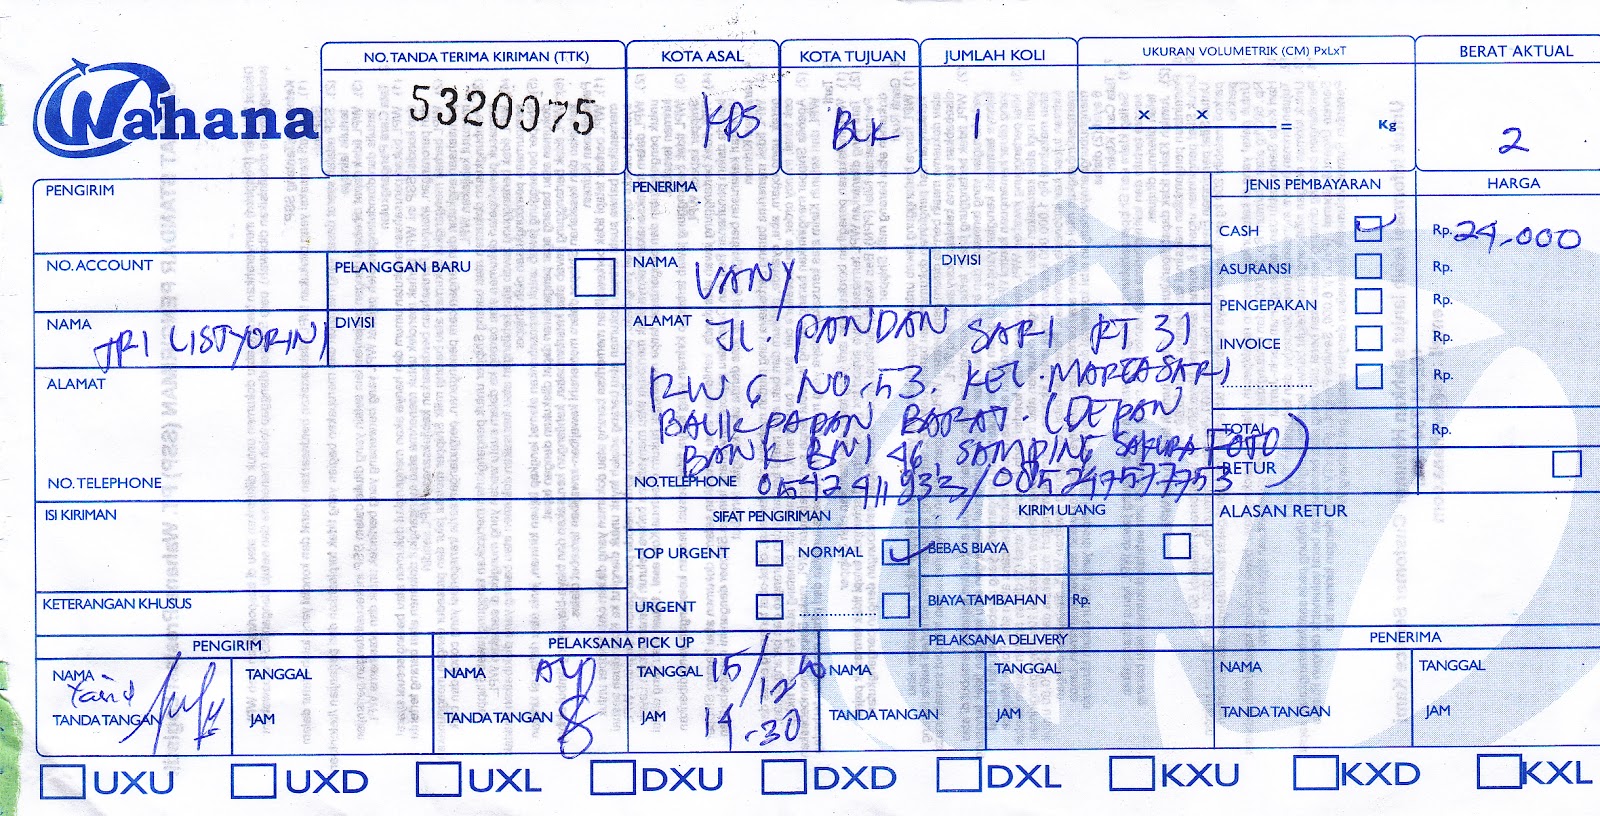 Wahana
NO. TANDA TERIMA KIRIMAN (TTK)
5320075
KOTA ASAL
KOTA TUJUAN
BLK
JUMLAH KOLI
1
UKURAN VOLUMETRIK (CM) PxLxT
x x = Kg
BERAT AKTUAL
2
PENGIRIM
NO. ACCOUNT
PELANGGAN BARU
NAMA TRI LISTYORINI
DIVISI
ALAMAT
NO. TELEPHONE
ISI KIRIMAN
KETERANGAN KHUSUS
PENERIMA
NAMA VANY
DIVISI
ALAMAT JL. PANDAN SARI RT 31
RW 6 NO. 53. KEL. MARGASARI
BALIKPAPAN BARAT. (DEPAN
BANK BNI 46, SAMPING SAKURA FOTO)
NO. TELEPHONE
SIFAT PENGIRIMAN
TOP URGENT
NORMAL
URGENT
KIRIM ULANG
BEBAS BIAYA
BIAYA TAMBAHAN Rp.
JENIS PEMBAYARAN
HARGA
CASH Rp. 24.000
ASURANSI Rp.
PENGEPAKAN Rp.
INVOICE Rp.
Rp.
TOTAL Rp.
RETUR
ALASAN RETUR
PENGIRIM
NAMA
TANDA TANGAN
TANGGAL
JAM
PELAKSANA PICK UP
NAMA
TANDA TANGAN
TANGGAL 15/12
JAM 14.30
PELAKSANA DELIVERY
NAMA
TANDA TANGAN
TANGGAL
JAM
PENERIMA
NAMA
TANDA TANGAN
TANGGAL
JAM
UXU UXD UXL DXU DXD DXL KXU KXD KXL